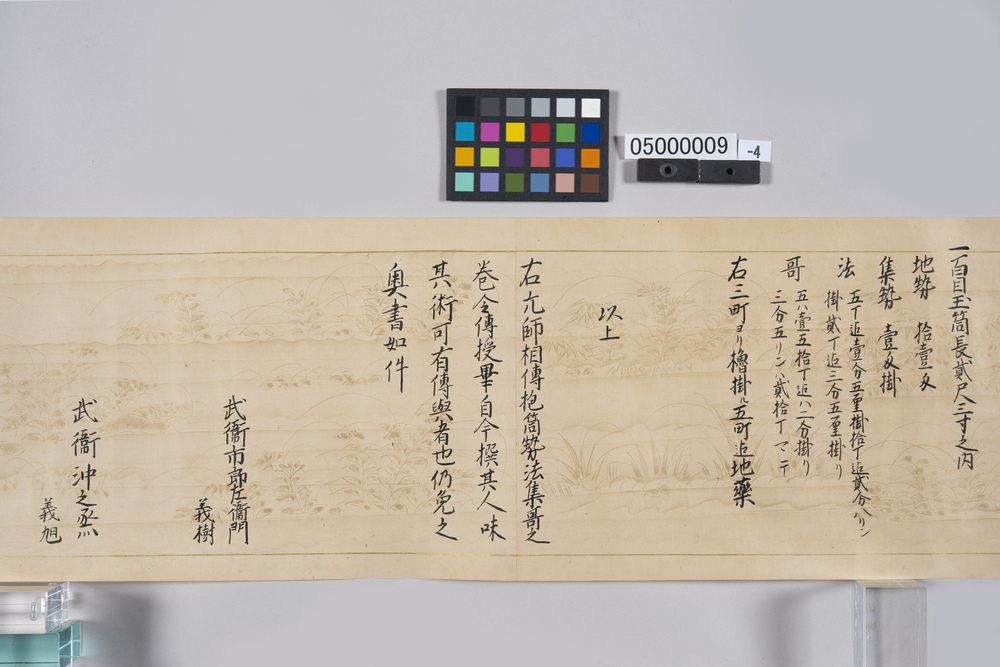 05000009
-4
一百目玉筒長貳尺三寸之内
地勢 拾壹匁
集勢 壹匁掛
法 五丁迄壹分五厘掛拾丁迄貳分八リン
掛貳丁迄三分五厘掛り
哥 五八壹五拾丁迄八二分掛り
三分五リン貳拾丁マテ
右三町ヨリ櫓掛ハ五町迄地藥
以上
右亢師相傳抱筒勢法集哥之
巻令傳授畢自今撰其人味
其術可有傳與者也仍免之
奥書如件
武衞市郎左衞門
義樹
武衞沖之烝
義旭